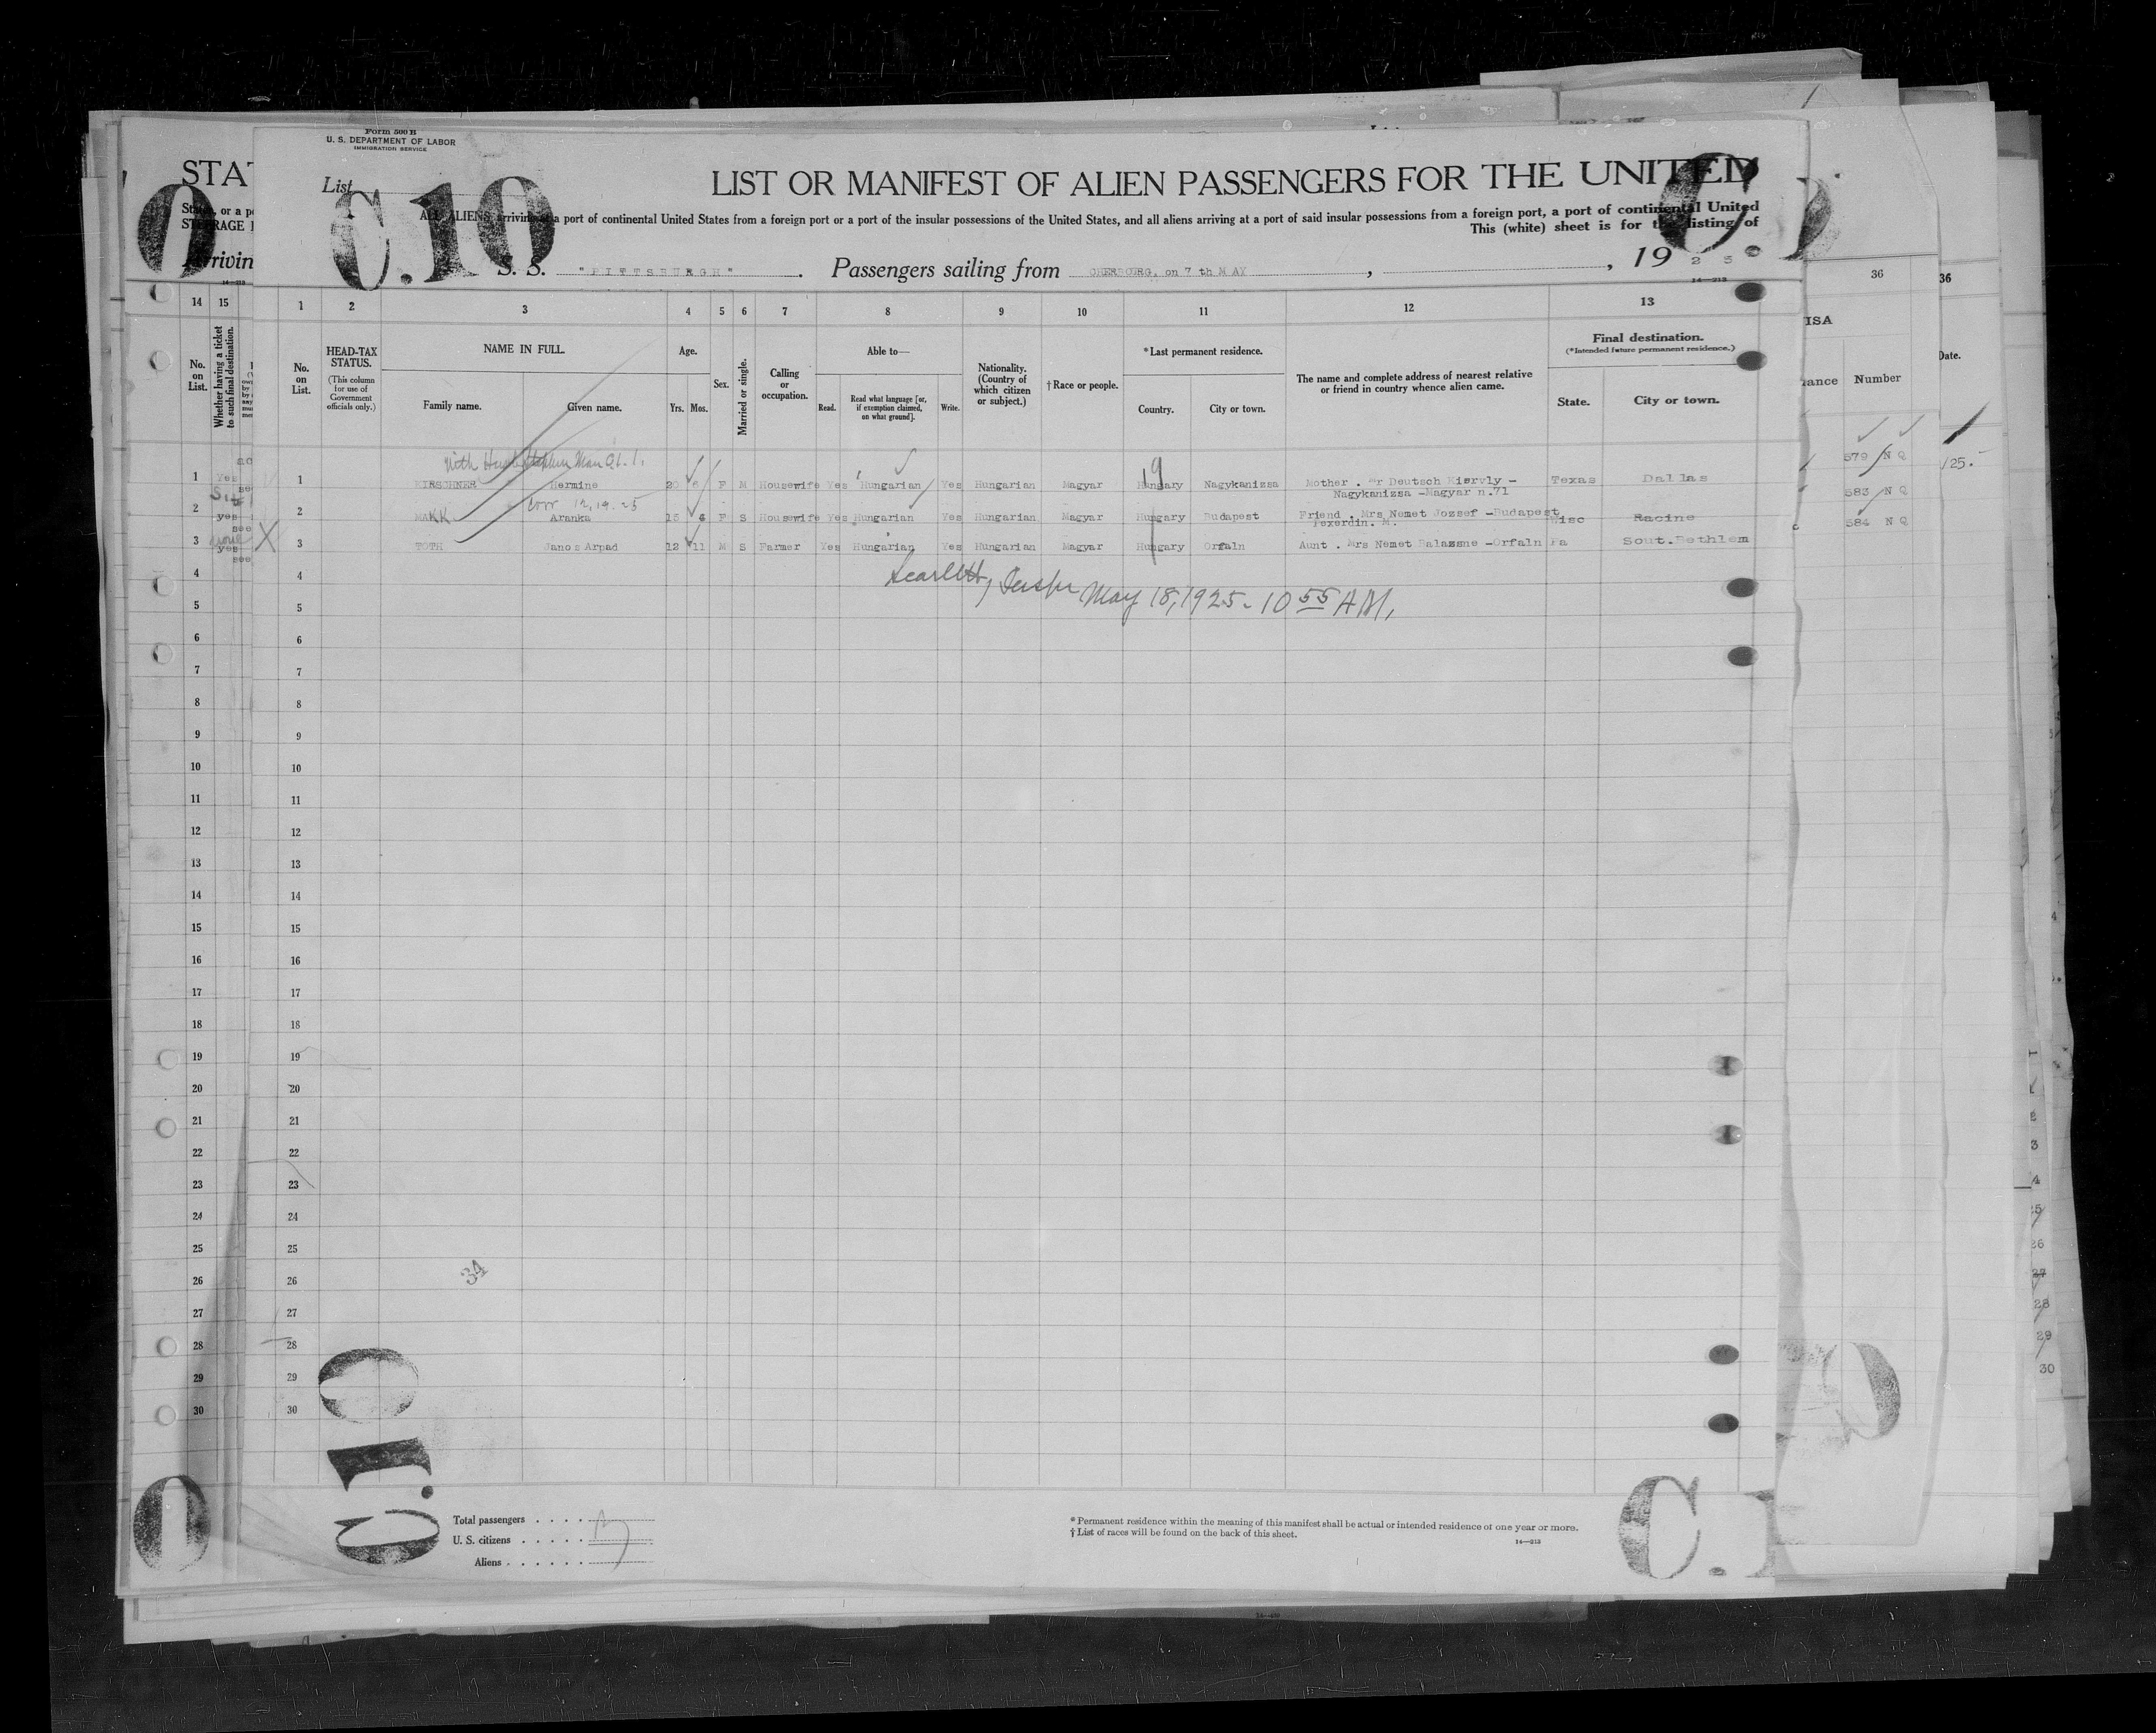 Form 500 B
U. S. DEPARTMENT OF LABOR
IMMIGRATION SERVICE
STA
List
C.10
LIST OR MANIFEST OF ALIEN PASSENGERS FOR THE UNITED
ALL ALIENS arriving at a port of continental United States from a foreign port or a port of the insular possessions of the United States, and all aliens arriving at a port of said insular possessions from a foreign port, a port of continental United
This (white) sheet is for the listing of
S. S. "PITTSBURGH". Passengers sailing from CHERBOURG, on 7 th MAY, , 19 25
14—213
14 15 1 2 3 4 5 6 7 8 9 10 11 12 13 36 36
No. on List.
Whether having a ticket to such final destination.
No. on List.
HEAD-TAX STATUS.
(This column for use of Government officials only.)
NAME IN FULL.
Family name. Given name.
Age.
Yrs. Mos.
Sex.
Married or single.
Calling or occupation.
Able to—
Read. Read what language [or, if exemption claimed, on what ground]. Write.
Nationality. (Country of which citizen or subject.)
† Race or people.
*Last permanent residence.
Country. City or town.
The name and complete address of nearest relative or friend in country whence alien came.
Final destination.
(*Intended future permanent residence.)
State. City or town.
ISA
Number
Date.
With
1 Yes 1 KIRSCHNER Hermine 20 6 F M Housewife Yes Hungarian Yes Hungarian Magyar Hungary Nagykanizsa Mother . Deutsch – Texas Dallas 579 N Q
Nagykanizsa –Magyar n.71
12,19.25
2 yes 2 MAKK Aranka 15 6 F S Housewife Yes Hungarian Yes Hungarian Magyar Hungary Budapest Friend . Mrs Nemet Jozsef –Budapest Wisc Racine 583 N Q
3 yes 3 TOTH Janos Arpad 12 11 M S Farmer Yes Hungarian Yes Hungarian Magyar Hungary Orfaln Aunt . Mrs Nemet Balazsne –Orfaln Pa Sout.Bethlem 584 N Q
4 4
Scarlett, May 18, 1925- 10 55 AM,
5 5
6 6
7 7
8 8
9 9
10 10
11 11
12 12
13 13
14 14
15 15
16 16
17 17
18 18
19 19
20 20
21 21
22 22
23 23
24 24
25 25
26 26
34
27 27
28 28
29 29
30 30
C.10
Total passengers
U. S. citizens
Aliens
* Permanent residence within the meaning of this manifest shall be actual or intended residence of one year or more.
† List of races will be found on the back of this sheet.
14—213
C.1